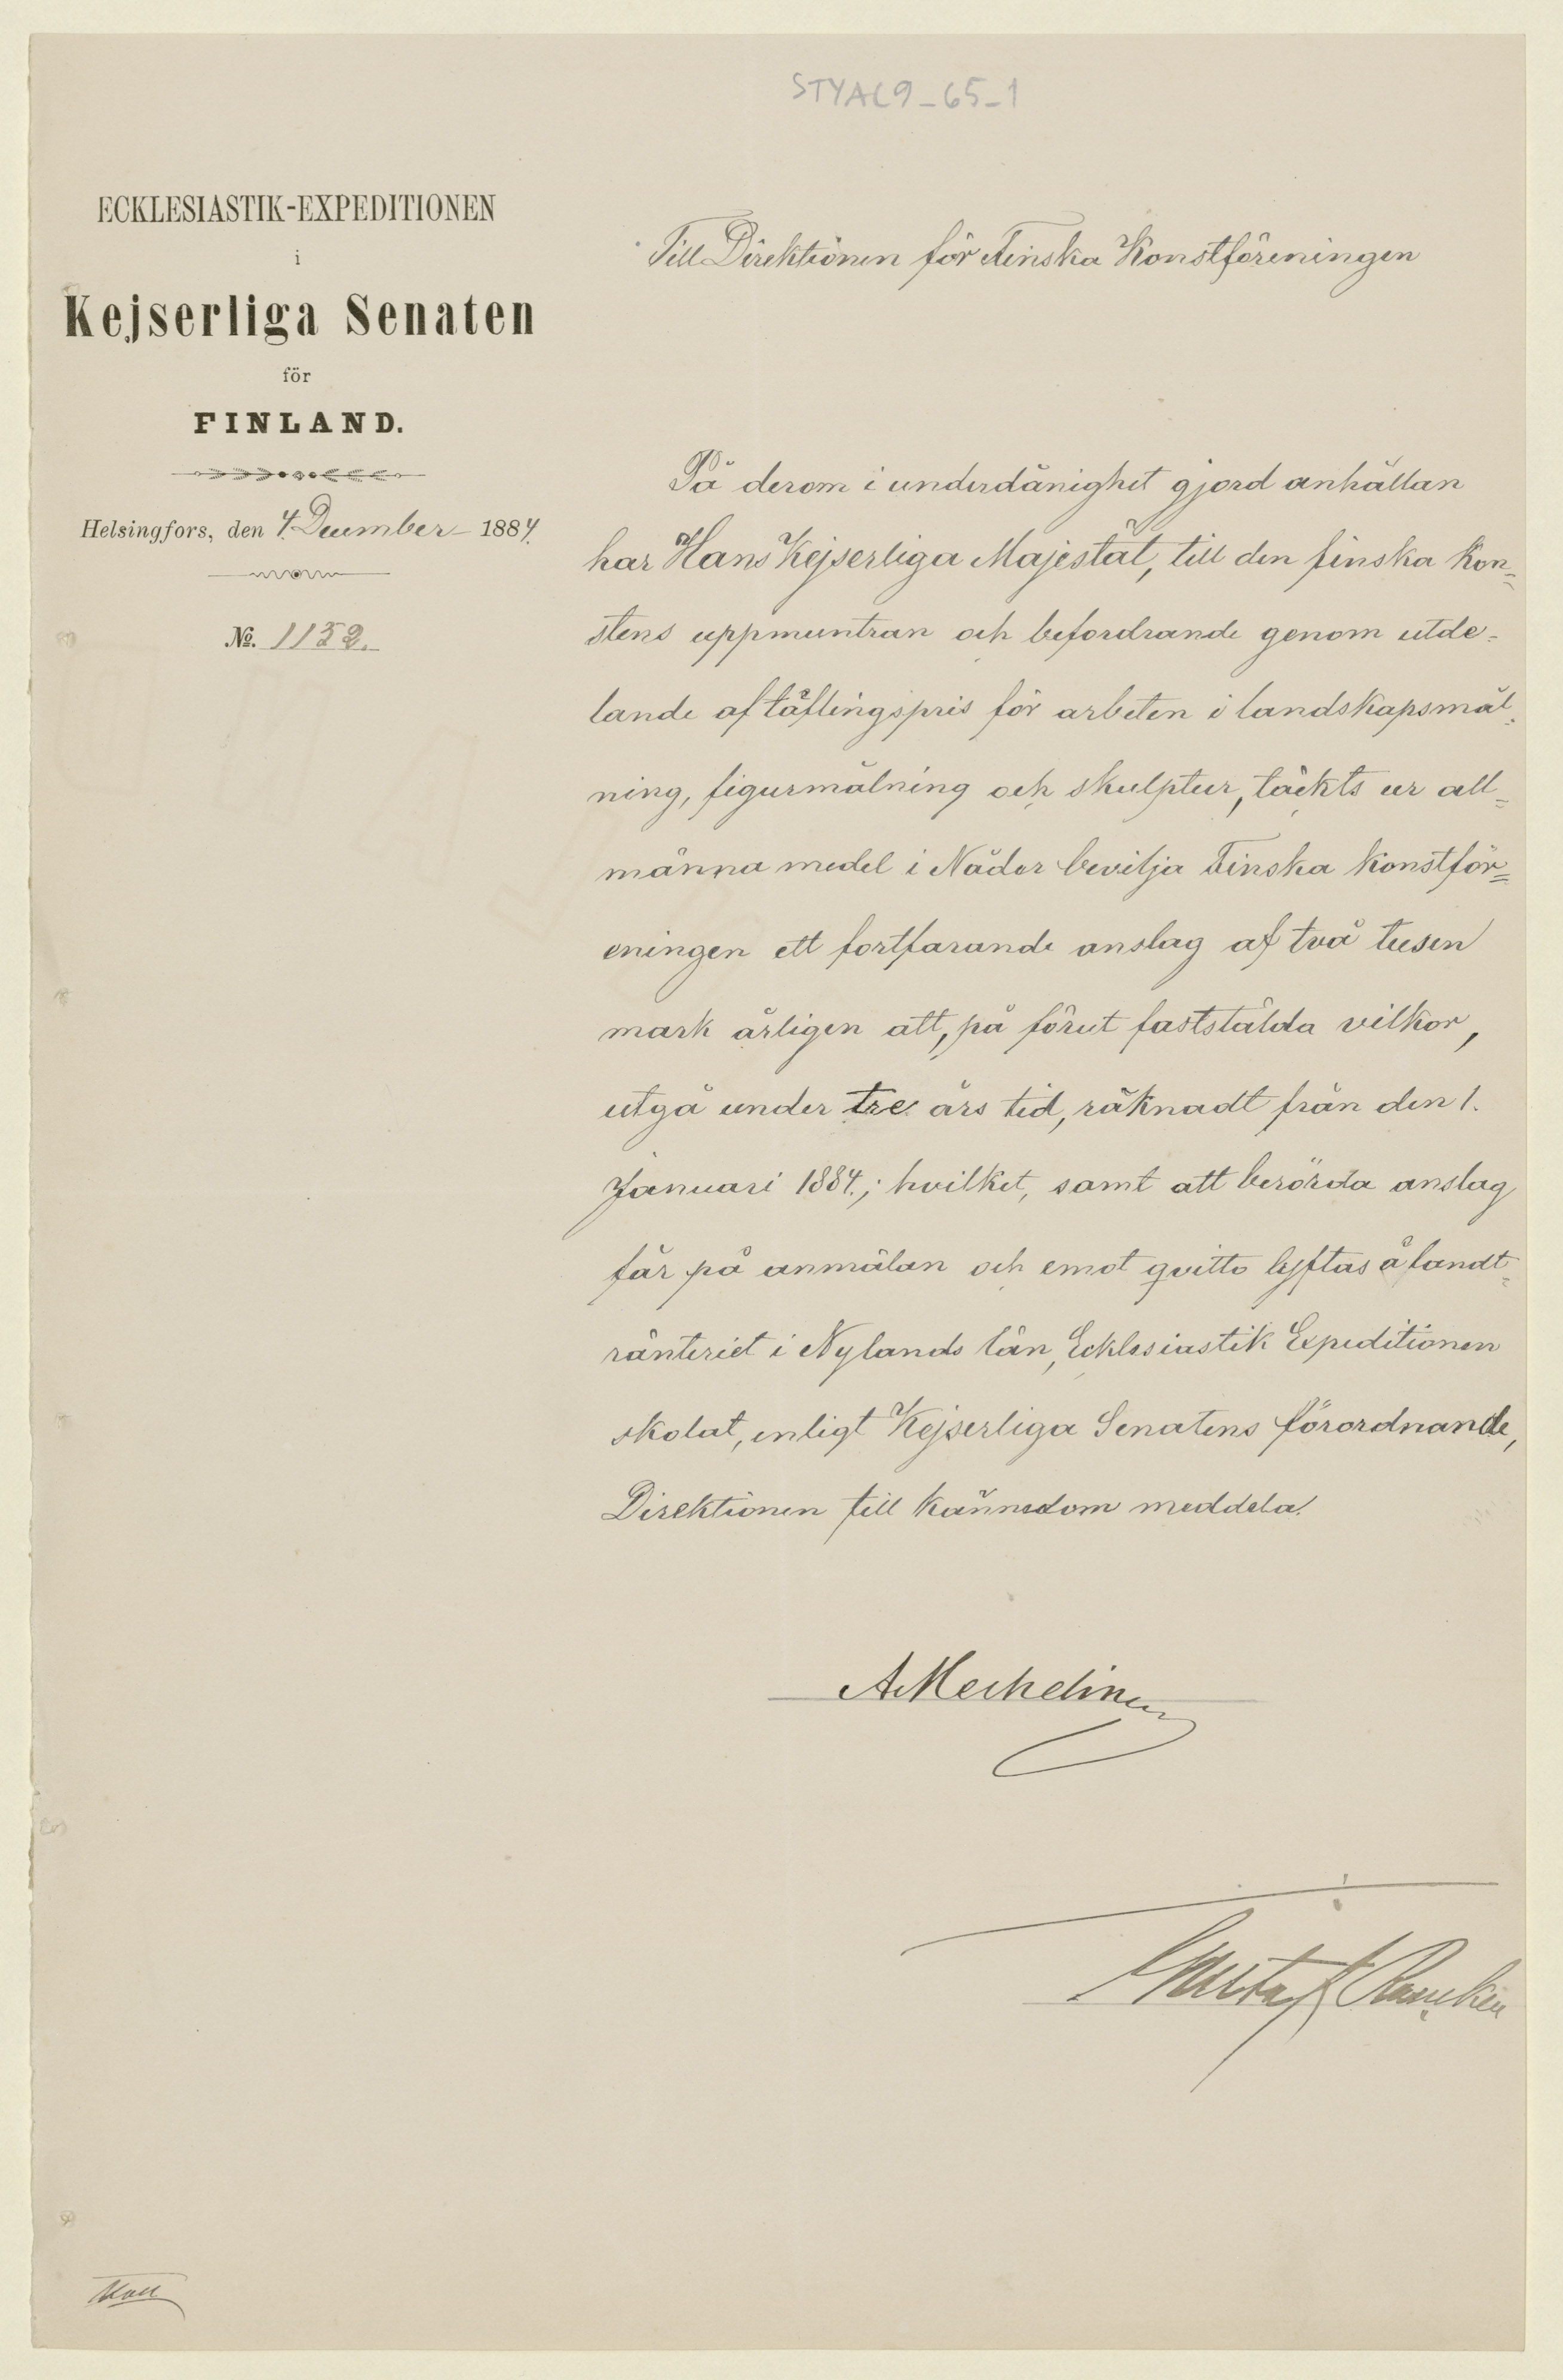 STYAL9_65_1
ECKLESIASTIK-EXPEDITIONEN
i
Kejserliga Senaten
för
FINLAND.
Helsingfors, den 4. December 1884.
No. 1152.
Till Direktionen för Finska Konstföreningen
På derom i underdånighet gjord anhållan
har Hans Kejserliga Majestät, till den finska kon=
stens uppmuntran och befordrande genom utde=
lande af täflingspris för arbeten i landskapsmål=
ning, figurmålning och skulptur, täckts ur all=
männa medel i Nåder bevilja Finska Konstför=
eningen ett fortfarande anslag af två tusen
mark årligen att, på förut faststälda vilkor,
utgå under tre års tid, räknadt från den 1.
Januari 1884.; hvilket, samt att berörda anslag
får på anmälan och emot qvitto lyftas å landt=
ränteriet i Nylands län, Ecklesiastik Expeditionen
skolat, enligt Kejserliga Senatens förordnande,
Direktionen till kännedom meddela.
A Mechelin
Gustaf Rancken